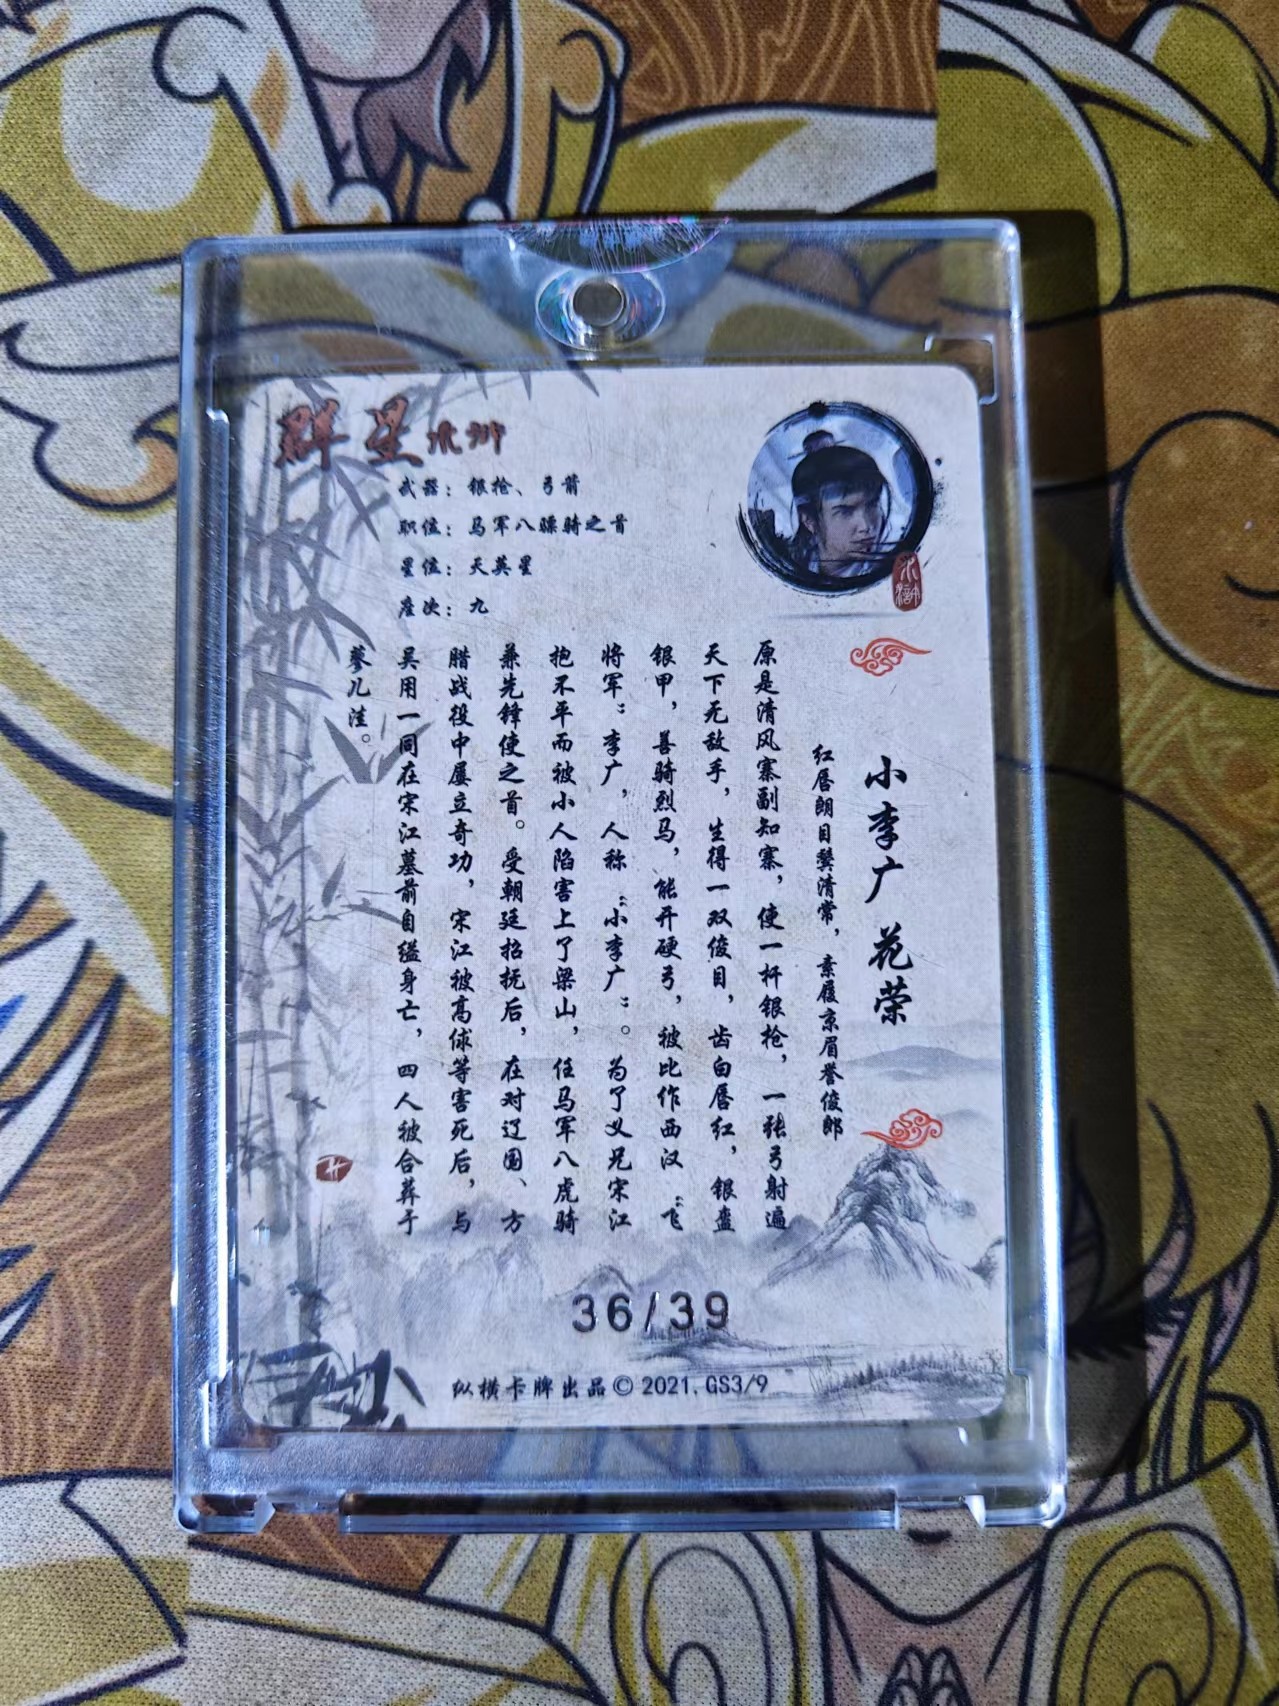 群星水浒
武器：银枪、弓箭
职位：马军八骠骑之首
星位：天英星
座次：九
水浒
小李广 花荣
红唇朗目鬓清常，素履京眉誉俊郎
原是清风寨副知寨，使一杆银枪，一张弓射遍
天下无敌手，生得一双俊目，齿白唇红，银盔
银甲，善骑烈马，能开硬弓，被比作西汉“飞
将军”李广，人称“小李广”。为了义兄宋江
抱不平而被小人陷害上了梁山，任马军八虎骑
兼先锋使之首。受朝廷招抚后，在对辽国、方
腊战役中屡立奇功，宋江被高俅等害死后，与
吴用一同在宋江墓前自缢身亡，四人被合葬于
蓼儿洼。
36/39
纵横卡牌出品©2021.GS3/9